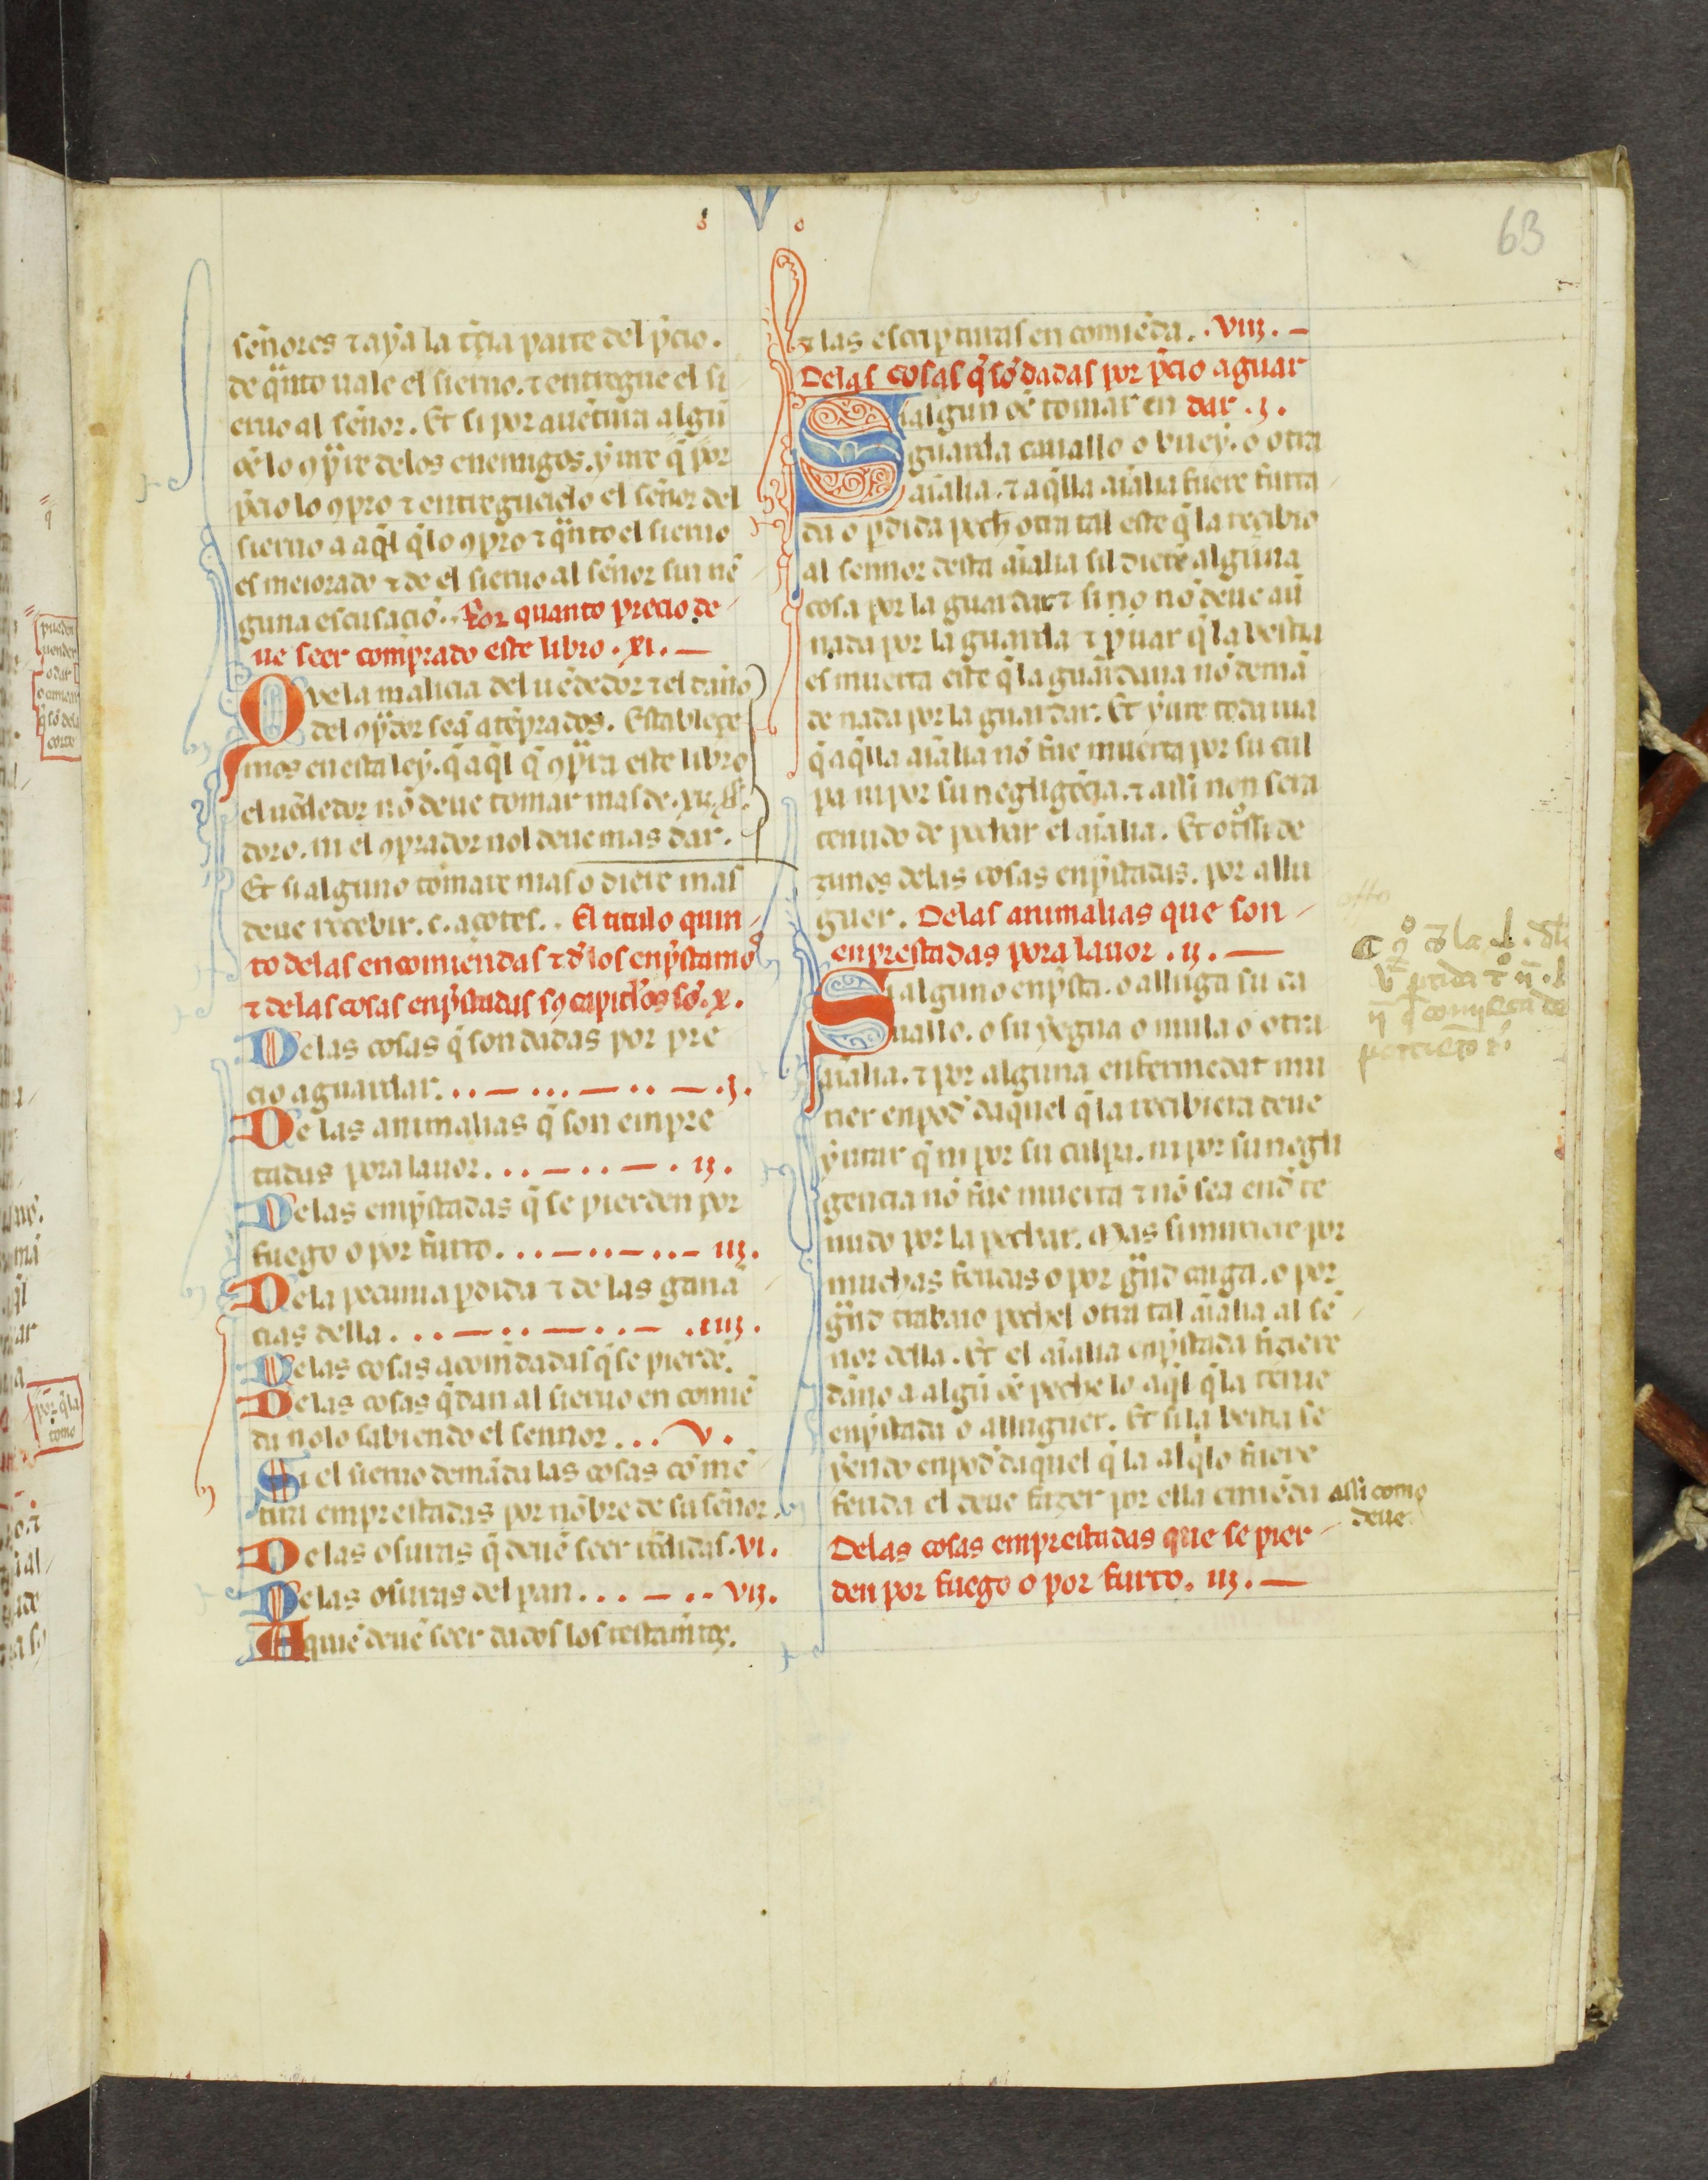 V
63
señores ⁊ aya la t̃cia parte del p̃cio.
de q̈nto uale el sieruo. ⁊ entregue el si
eruo al señor. Et si por auẽtura algũ
õe lo ꝯp̈re delos enemigos. yure q̃ por
p̃cio lo ꝯpro ⁊ entreguelo el señor del
sieruo a aq̃l q̃lo ꝯpro ⁊ q̈nto el sieruo
es meiorado ⁊ de el sieruo al señor sin nẽ
guna escusaciõ.. Por quanto precio de
ue seer comprado este libro. xi. —
Qve la malicia del uẽdedor ⁊ el daño
del ꝯp̈dor seã atẽprados. Estableçe
mos en esta ley. q̃ aq̃l q̃ ꝯp̈ra este libro
el uẽdedor nõ deue tomar mas de. xij. ss.
doro. ni el ꝯprador nol deue mas dar.
Et si alguno tomare mas o diere mas
deue recebir. c. açotes.. El titulo quin
to delas encomiendas ⁊ d̃los enp̃stamos
⁊ delas cosas enp̃stadas sꝯ capitl̃os sõ. x.
Delas cosas q̃ son dadas por pre
cio aguardar. .. — ... — .. — .j.
De las animalias q̃ son empre
tadas pora lauor. .. — .. — . ij.
Delas emp̃stadas q̃ se pierden por
fuego o por furto. .. — .. — .. — iij.
Dela pecunia ꝑdida ⁊ de las ganã
cias della. .. — .. — .. — .iiij.
Delas cosas acomẽdadas q̃ se pierdẽ.
Delas cosas q̃ dan al sieruo en comẽ
da nolo sabiendo el sennor... v.
Si el sieruo demãda las cosas cõmẽ
tari emprestadas por nõbre de su señor.
De las osuras q̃ deuẽ seer rẽdidas. vi.
De las osuras del pan. .. — .. vij.
A quiẽ deuẽ seer dados los testamẽtos.
⁊ las escripturas en comiẽda. . viij. —
Delas cosas q̃ sõ dadas por p̃cio aguar
Si algun oẽ tomar en dar .j.
guarda cauallo o buey. o otra
aĩalia. ⁊ aq̃lla aĩalia fuere furta
da o ꝑdida pech otra tal este q̃ la recibio
al sennor desta aĩalia sil diere alguna
cosa por la guardar ⁊ si no nõ deue aũ
nada por la guarda ⁊ ꝓuar q̃ la bestia
es muerta este q̃ la guardaua nõ demã
de nada por la guardar. Et yure toda uia
q̃ aq̃lla aĩalia nõ fue muerta por su cul
pa ni por su negligẽcia. ⁊ assi non sera
tenudo de pechar el aĩalia. Et otͦssi de
zimos delas cosas enp̃stadas. por allu
guer. Delas animalias que son
enprestadas pora lauor .ij. —
Si alguno enp̃sta. o alluga su ca
uallo. o su yegua o mula o otra
aĩalia. ⁊ por alguna enfermedat mu
rier en pod̃ daquel q̃ la recibiera deue
yurar q̃ ni por su culpa. ni por su negli
gencia nõ fue muerta ⁊ nõ sea end̃ te
nudo por la pechar. Mas si muriere por
muchas feridas o por g̈nd carga. o por
g̈nd trabaio pechel otra tal aĩalia al se
nor della. Et el aĩalia enp̃stada fiziere
daño a algũ oẽ peche lo aq̃l q̃ la tenie
enp̃stada o alluguer. Et si la bestia se
yendo en pod̃ daquel q̃ la alq̃lo fuere
ferida el deue fazer por ella emiẽda assi como
deue.
Delas cosas emprestadas que se pier
den por fuego o por furto. iij. —